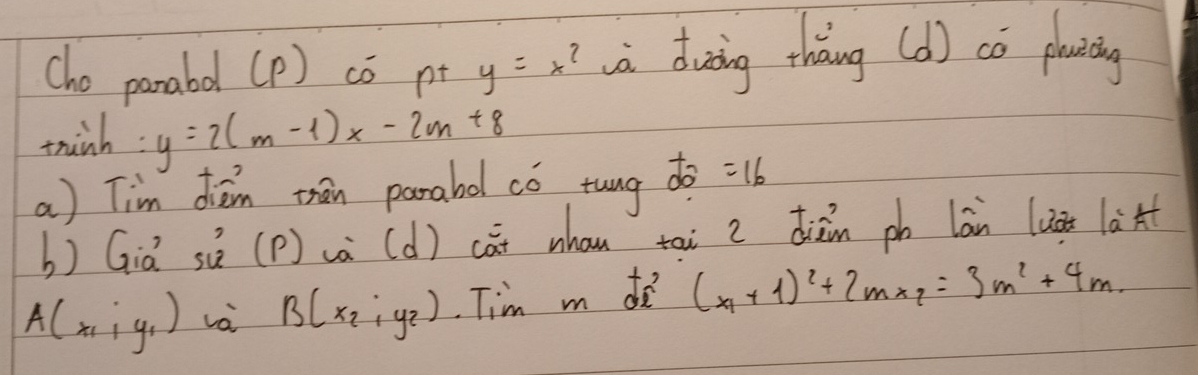 Cho parabol (P) có pt y = x² và đường thẳng (d) có phương
trình : y = 2(m - 1)x - 2m + 8
a) Tìm điểm trên parabol có tung độ = 16
b) Giả sử (P) và (d) cắt nhau tại 2 điểm pb lần lượt là
A(x₁ ; y₁) và B(x₂ ; y₂). Tìm m để (x₁ + 1)² + 2mx₂ = 3m² + 4m.